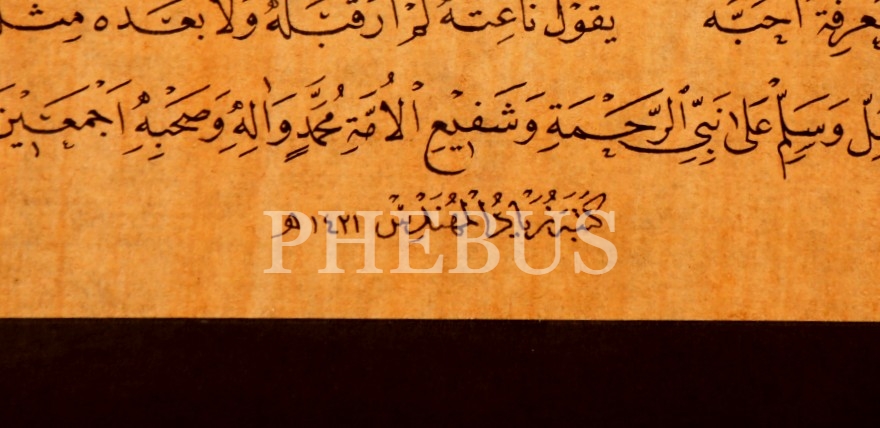 معرفة أحبه يقول ناعته لم أر قبله ولا بعده مثله
صل وَسَلِّمْ عَلى نَبِيِّ ٱلرَّحْمَةِ وَشَفِيْعِ الْاُمَّةِ مُحَمَّدٍ وَاٰلِهِ وَصَحْبِهِ اَجْمَعَيْن
كتبه زياد المهندس ١٤٢١ هـ
PHEBUS